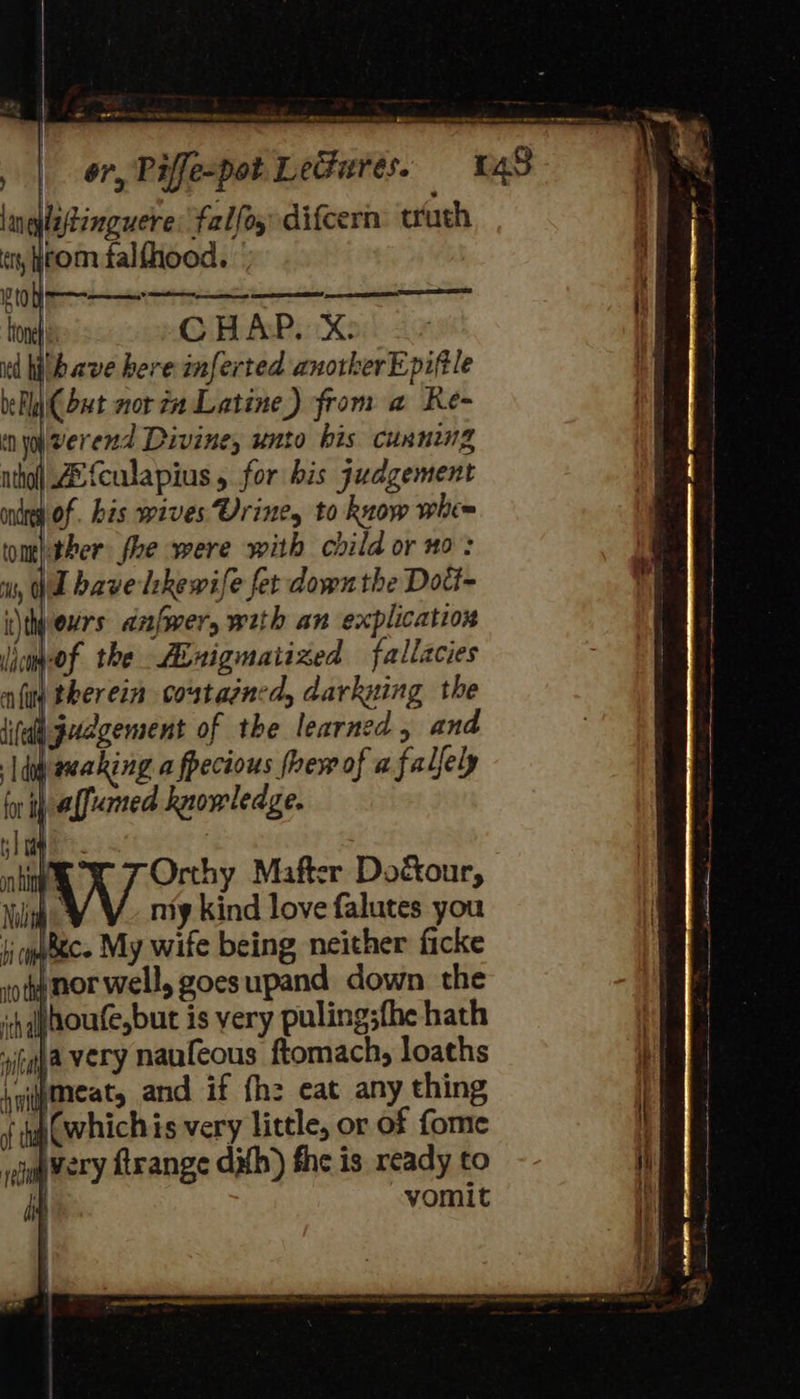 or, Pisse-pot Lectures. 149
distinguere falso, discern truth
from falshood.
CHAP. X.
I have here inserted another Epistle
(but not in Latine) from a Re-
verend Divine, unto his cunning
Æsculapius, for his judgement
of his wives Urine, to know whe-
ther she were with child or no:
I have likewise set down the Doct-
ours answer, with an explication
of the Ænigmatized fallacies
therein contained, darkning the
judgement of the learned, and
making a specious shew of a falsely
assumed knowledge.
WOrthy Master Doctour,
my kind love salutes you
&c. My wife being neither sicke
nor well, goes up and down the
house, but is very puling; she hath
a very nauseous stomach, loaths
meat, and if she eat any thing
(which is very little, or of some
very strange dish) she is ready to
vomit